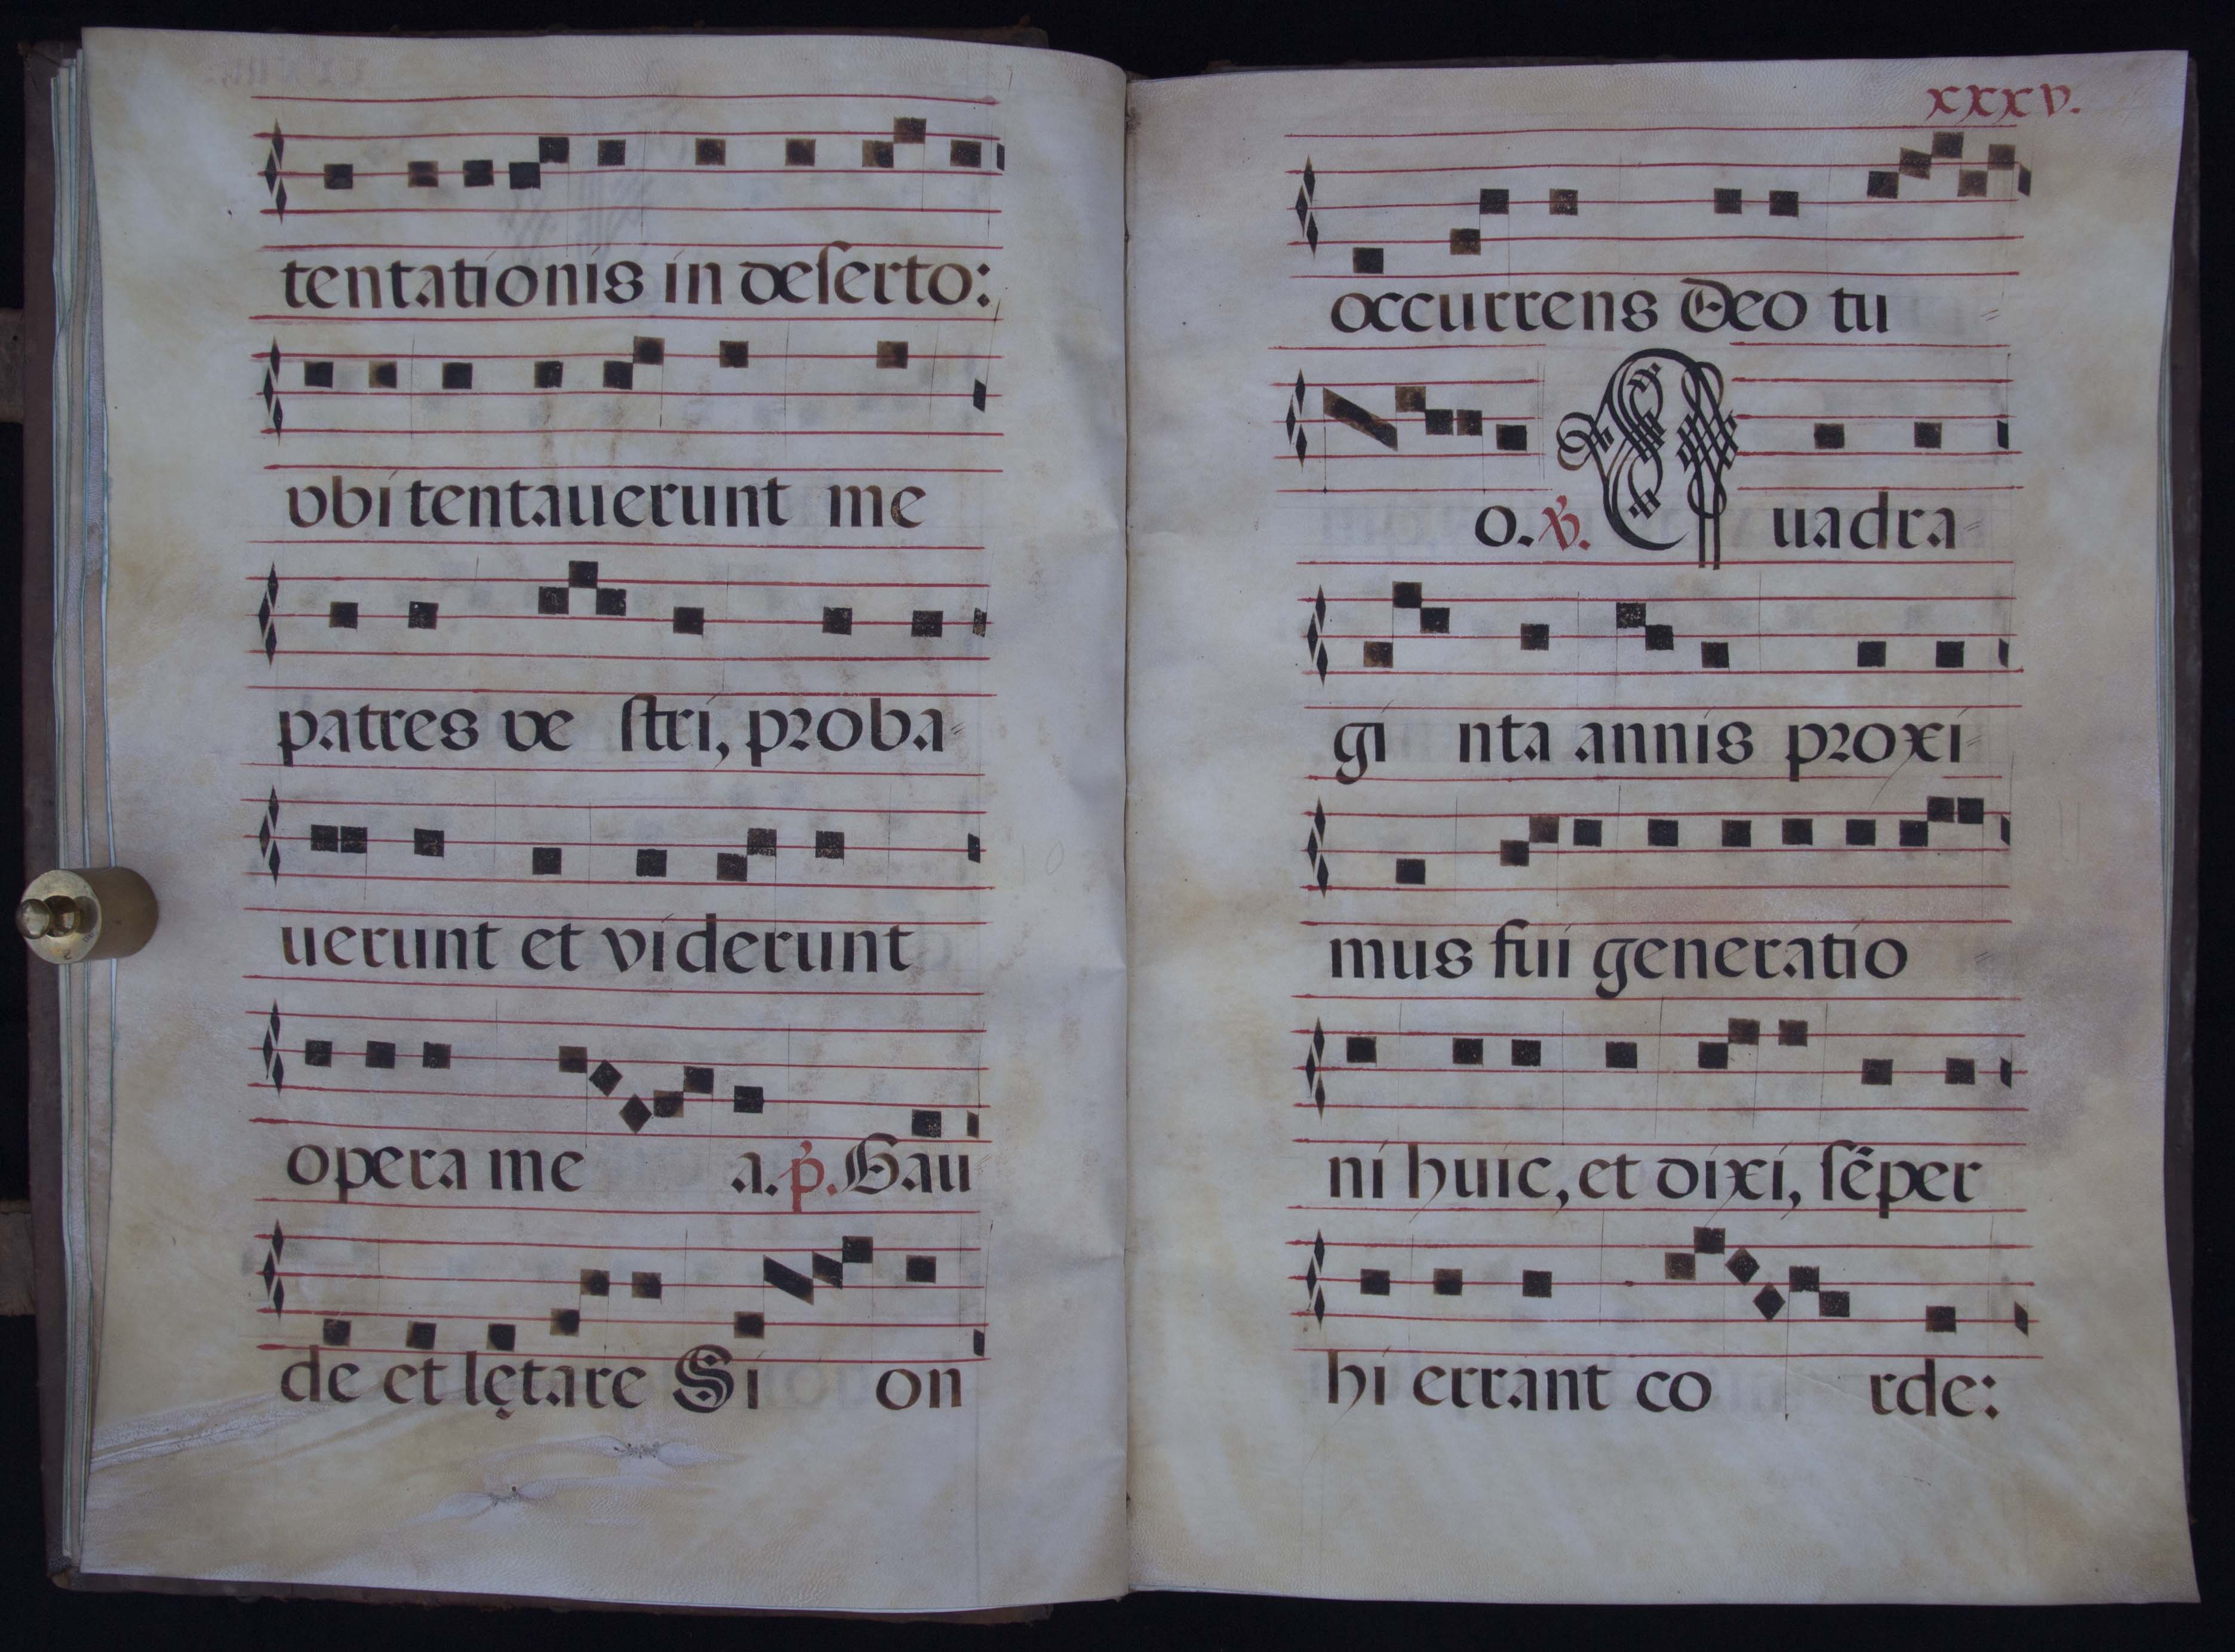 tentationis in deserto:
vbi tentauerunt me
patres ve stri, proba=
uerunt et viderunt
opera me a. p. Gau
de et lętare Si on
xxxv.
occurrens Deo tu =
o. v. Quadra=
gi nta annis proxi=
mus fui generatio =
ni huic, et dixi, sẽper
hi errant co rde: